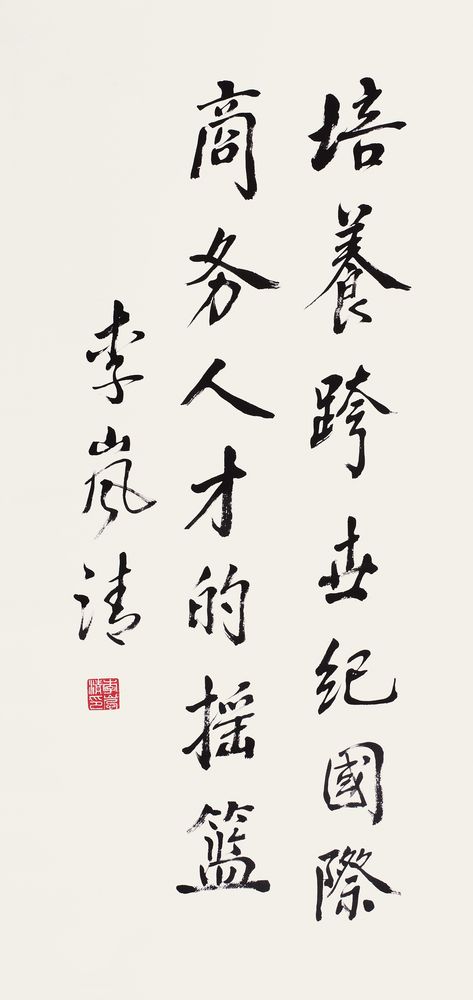 培養跨世紀國際
商务人才的摇篮
李岚清